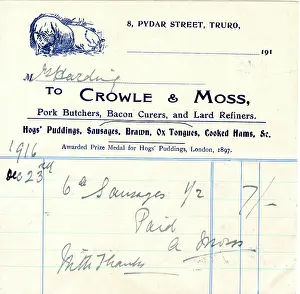 8, PYDAR STREET, TRURO,
191
M Harding
TO CROWLE & MOSS,
Pork Butchers, Bacon Curers, and Lard Refiners.
Hogs' Puddings, Sausages, Brawn, Ox Tongues, Cooked Hams, &c.
Awarded Prize Medal for Hogs' Puddings, London, 1897.
1916
Dec 23rd 6 lb Sausages 1/2 7/-
Paid
A Moss
With Thanks